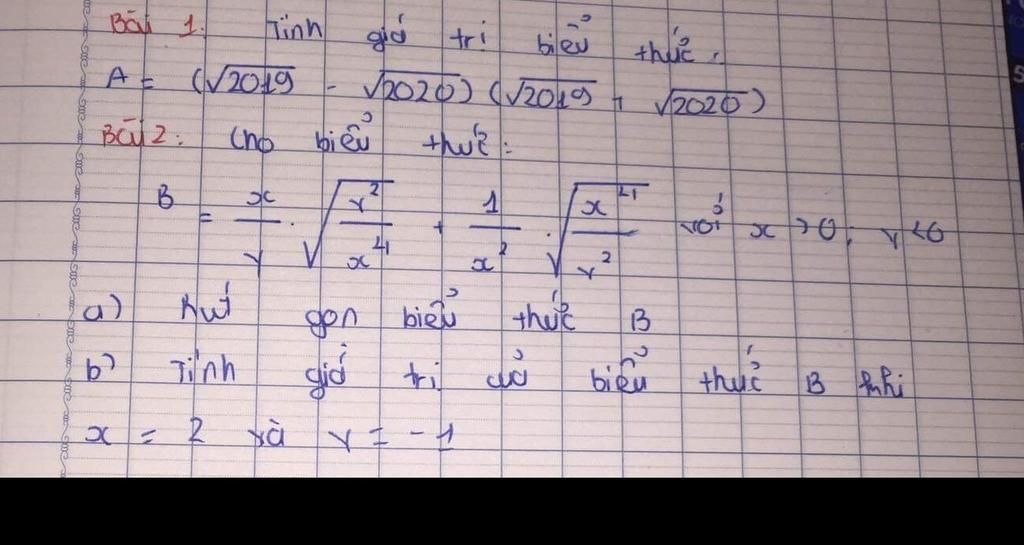 Bài 1. Tính giá trị biểu thức:
A = (√2019 - √2020)(√2019 + √2020)
Bài 2: Cho biểu thức:
B = x/y · √(y²/x⁴) + 1/x² · √(x⁴/y²) với x > 0; y < 0
a) Rút gọn biểu thức B
b) Tính giá trị của biểu thức B khi
x = 2 và y = -1